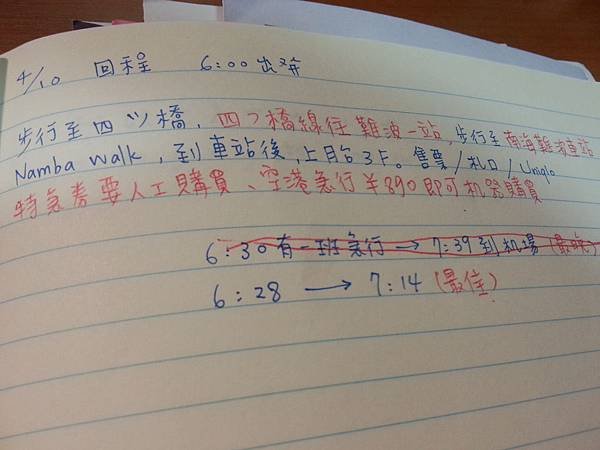 4/10 回程 6:00 出発
步行至四ツ橋，四つ橋線往難波一站，步行至南海難波車站
Namba Walk，到車站後，上月台3F。售票/札口/Uniqlo
特急券要人工購買、空港急行￥890即可机器購買
6:30有一班急行→7:39到机場(最晚)
6:28 → 7:14 (最佳)